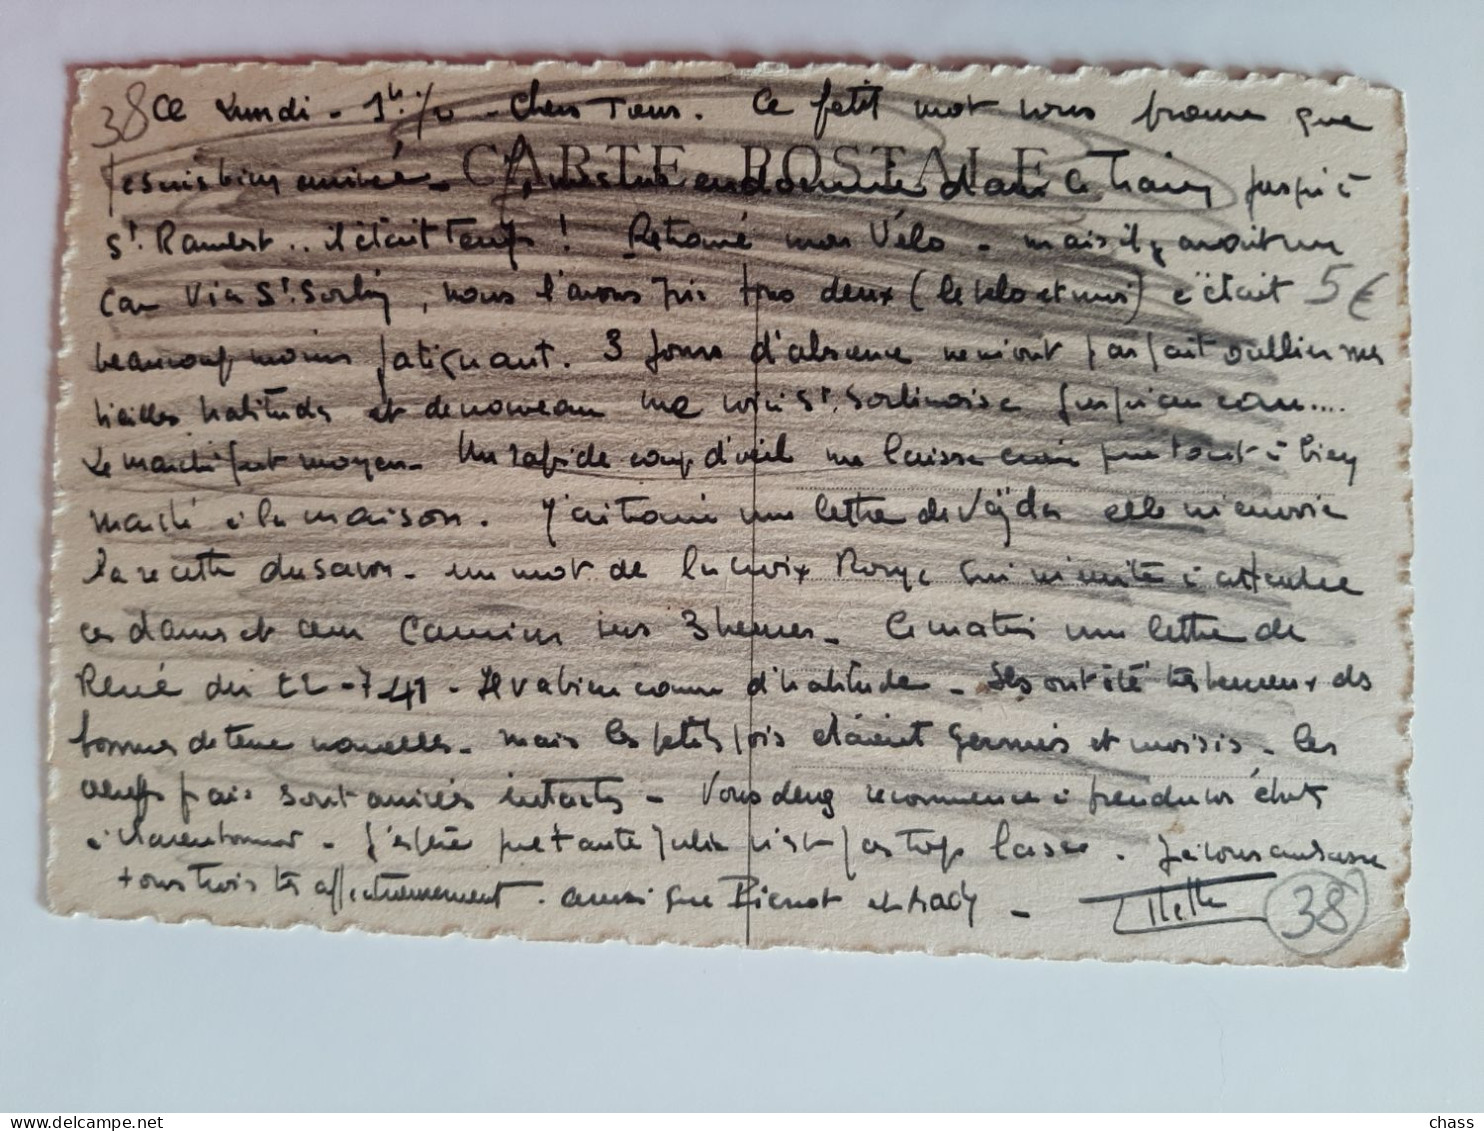 38 Ce Lundi - 1h. 1/2 - Chers Tous. Ce petit mot vous prouve que
CARTE POSTALE
je suis bien arrivé - endormie dans le train jusqu'à
St. Rambert .. il était temps ! Retrouvé mon Vélo - mais il y avait un
car via St. Sorlin, nous l'avons pris tous deux (le vélo et moi) c'était
5€
beaucoup moins fatigant. 3 jours d'absence ne m'ont pas fait oublier mes
vieilles habitudes et de nouveau me voici St. Sorlinoise jusqu'au cou....
Le marché fut moyen - Un rapide coup d'œil me laisse croire que tout a bien
marché à la maison. J'ai trouvé une lettre de Vajda elle m'envoie
la recette du savon - un mot de la Croix Rouge qui m'invite à attendre
ces dames et leur camion vers 3 heures - Ce matin une lettre de
René du 22-7-41 - Il va bien comme d'habitude - Ils ont été très heureux des
pommes de terre nouvelles - mais les petits pois étaient germés et moisis - les
œufs frais sont arrivés intacts - Vous deng recommence à prendre vos
à - J'espère que tante Julia n'est pas trop lasse - Je vous embrasse
tous trois très affectueusement - ainsi que Pierrot et Mady -
38